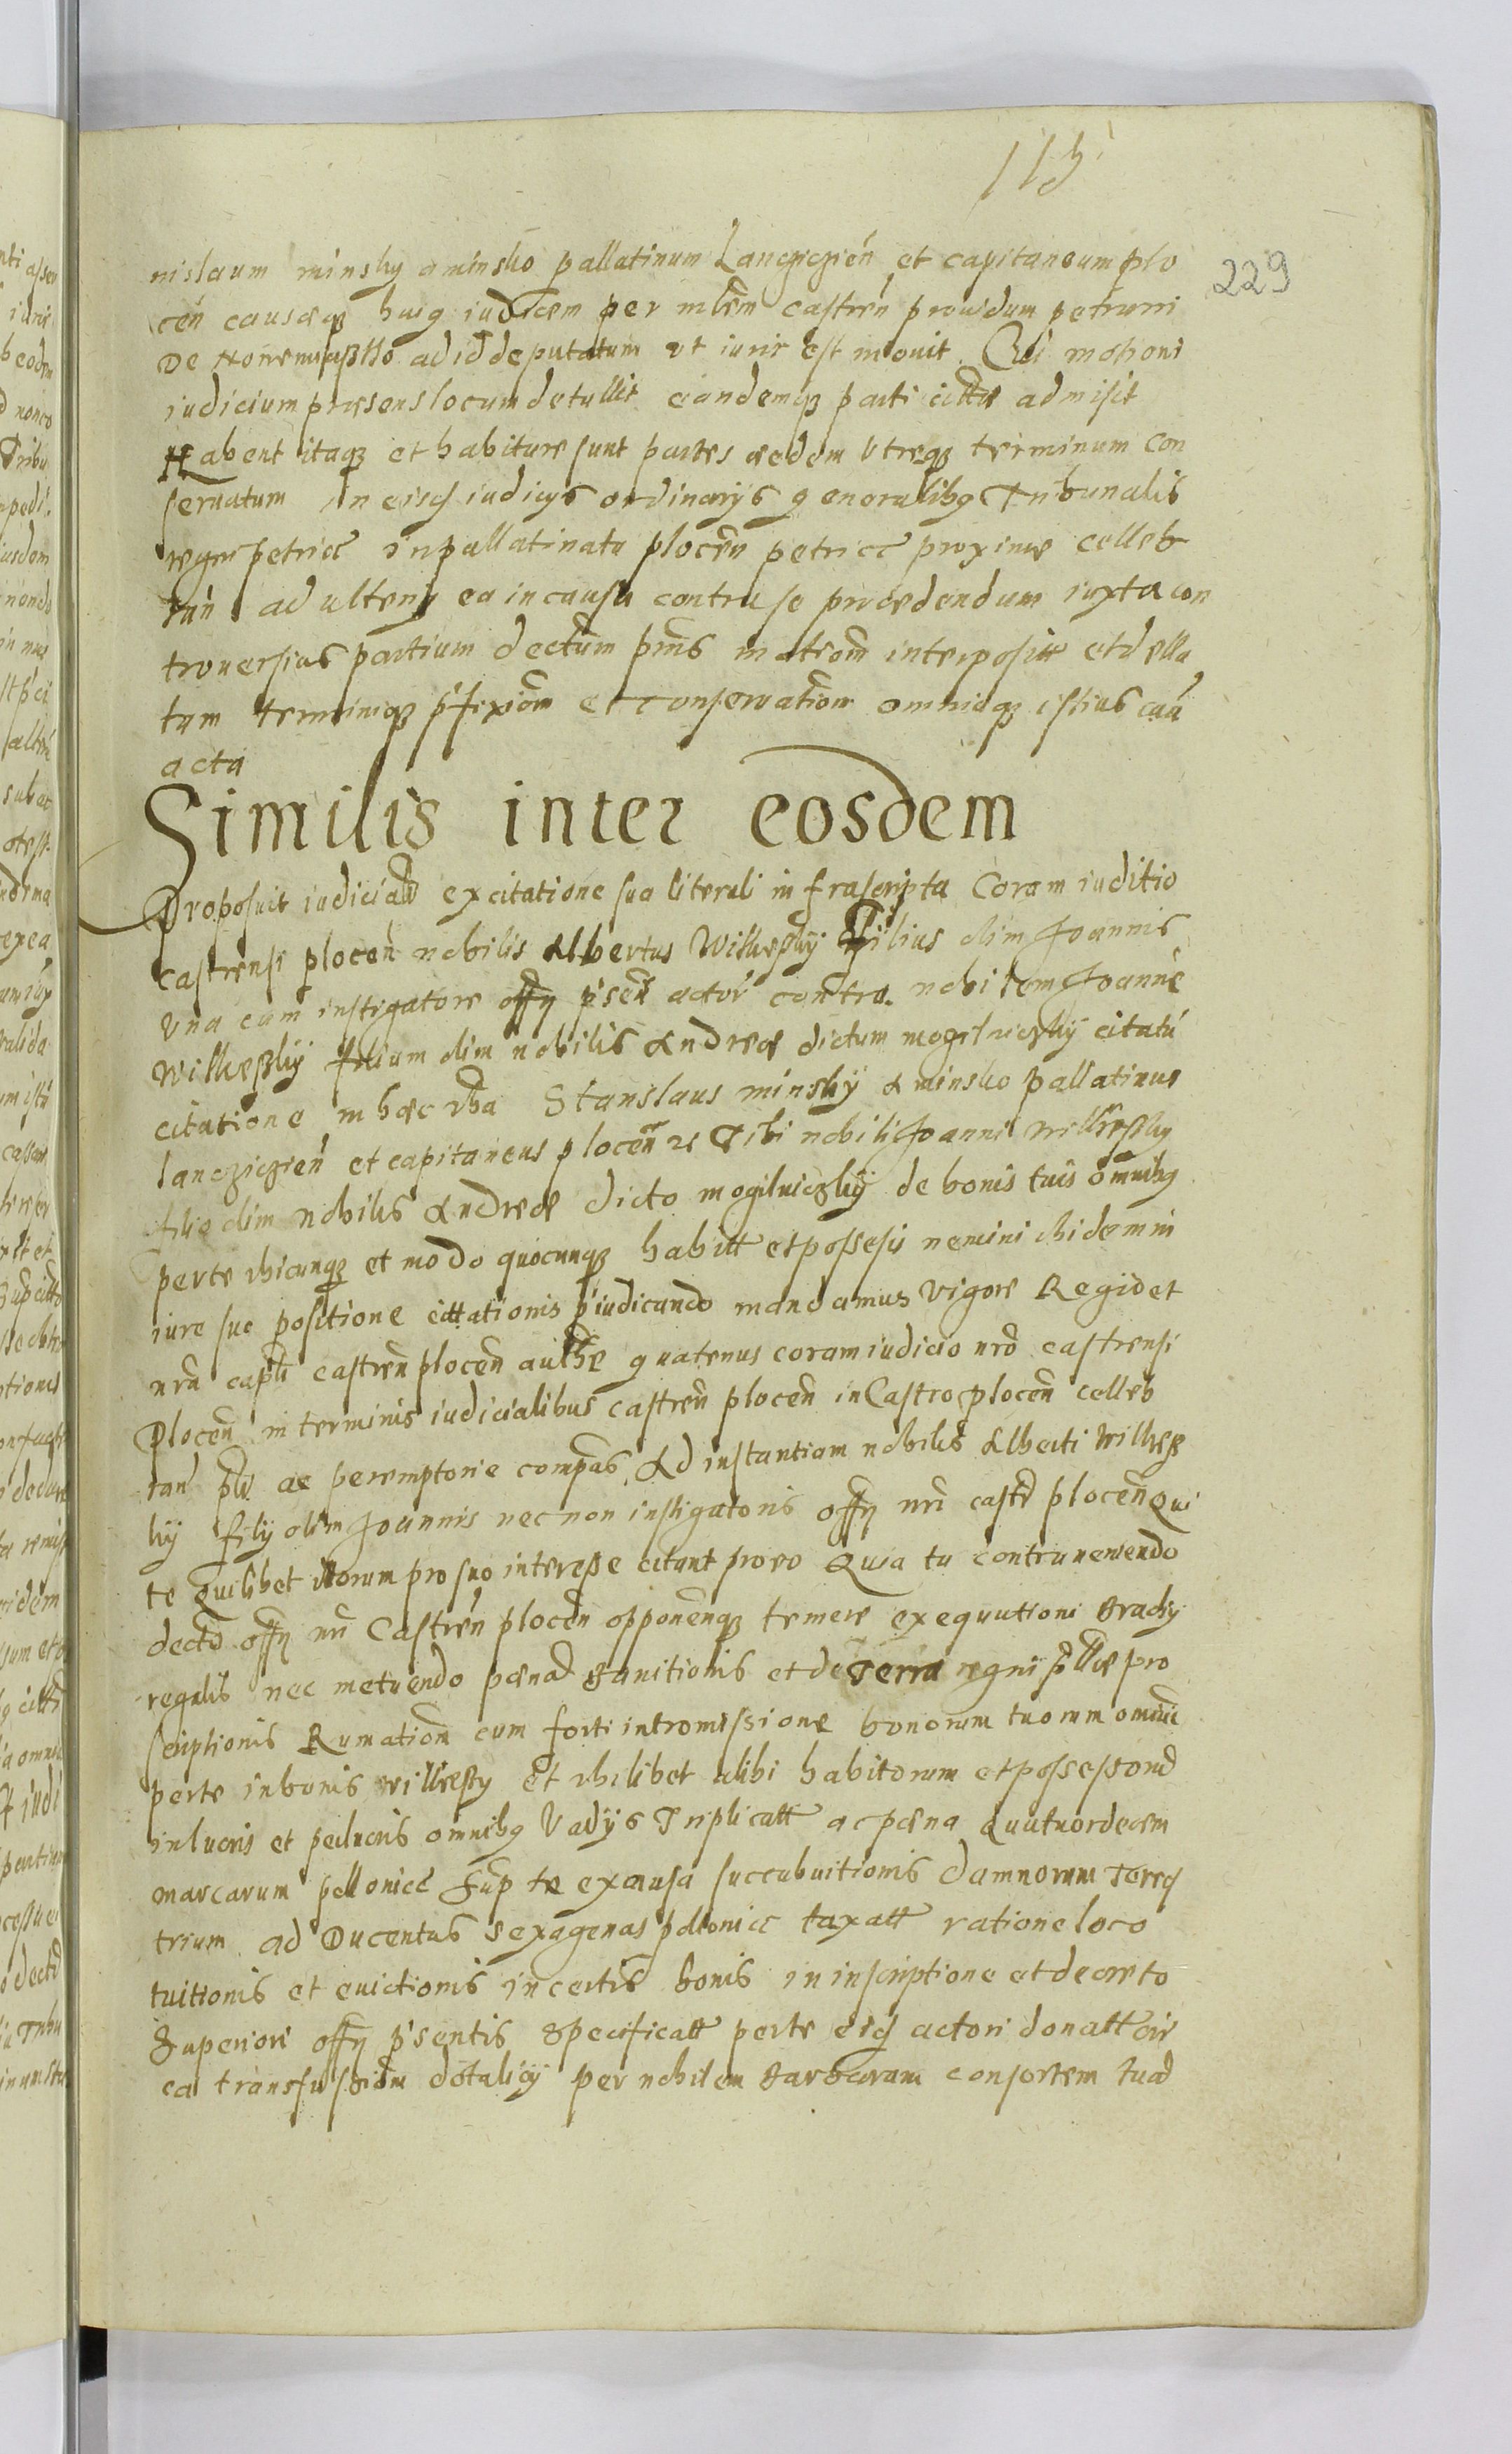 115
229
nislaum minsky a minsko pallatinum Lancziczień et capitaneum plo
ceń causæqz huiq iudicem per mlem castreń prouidum petrum
De ad id deputatum vt iuris est mouit Cui motioni
iudicium præsens locum detullit eandemqz parti citte admisit
Habent itaqz et habiture sunt partes eædem vtreqz terminum con
seruatum In eisq iudicijs ordinarijs generalibq Tribunalis
regni petricc in pallatinatu ploceń petricc proxime celleb
rań ad ulterig ea in causa contra se procedendum iuxta con
trouersias partium dectum pñs motiom interpositt et della
tum terminiqz pfixiom et conseruatiom omniaqz istius cau
acta
Similis inter eosdem
Proposuit iudicialr ex citatione sua literali infrascripta Coram iuditio
castrensi ploceń nobilis Albertus Wilkeßky filius olim Joannis
Vna cum instigatore offy pseń actor contra nobilem Joanne
Wilkeßky filium olim nobilis Andreæ dictum mogilniczky citatu
citatione in hæc vba Stanslaus minsky A minsko pallatinus
lancziczień et capitaneus ploceń zc Tibi nobili Joanni Wilkeßky
filio olim nobilis Andreæ dicto mogilniczky de bonis tuis omnibq
perte vbicunqz et modo quocunqz habitt et possesis nemini ibidem in
iure suo positione cittationis piudicando mandamus vigore Regia et
nra capli castreń ploceń authe quatenus coram iudicio nro castrensi
Ploceń in terminis iudicialibus castreń ploceń in Castro ploceń celleb
rań plr ac peremptorie compas Ad instantiam nobilis Alberti Wilkeß
ky filij olim Joannis nec non instigatoris offy nri castr ploceń Qui
te Quilibet illorum pro suo interesse citant pro eo Quia tu contraueniendo
decto offy nri Castreń ploceń opponenqz temere exequutioni Brachij
regalis nec metuendo pæna banitionis et de Terra regni pllæ pro
scriptionis Rumatiom cum forti intromissione bonorum tuorum omnium
perte in bonis wilkeßy et vbilibet alibi habitorum et possessord
in lucris et perlucris omnibq Vadijs Triplicatt ac pæna Quatuordecem
marcarum pollonicc Sup te ex causa succubuitionis damnorum Terres
trium ad Ducentas sexagenas pollonicc taxatt ratione loco
tuitionis et euictionis in certis bonis in inscriptione et decreto
Superiori offy psentis specificatt perte eiq actori donatt cir
ca transfusiom dotalicij per nobilem Barbaram consortem tua